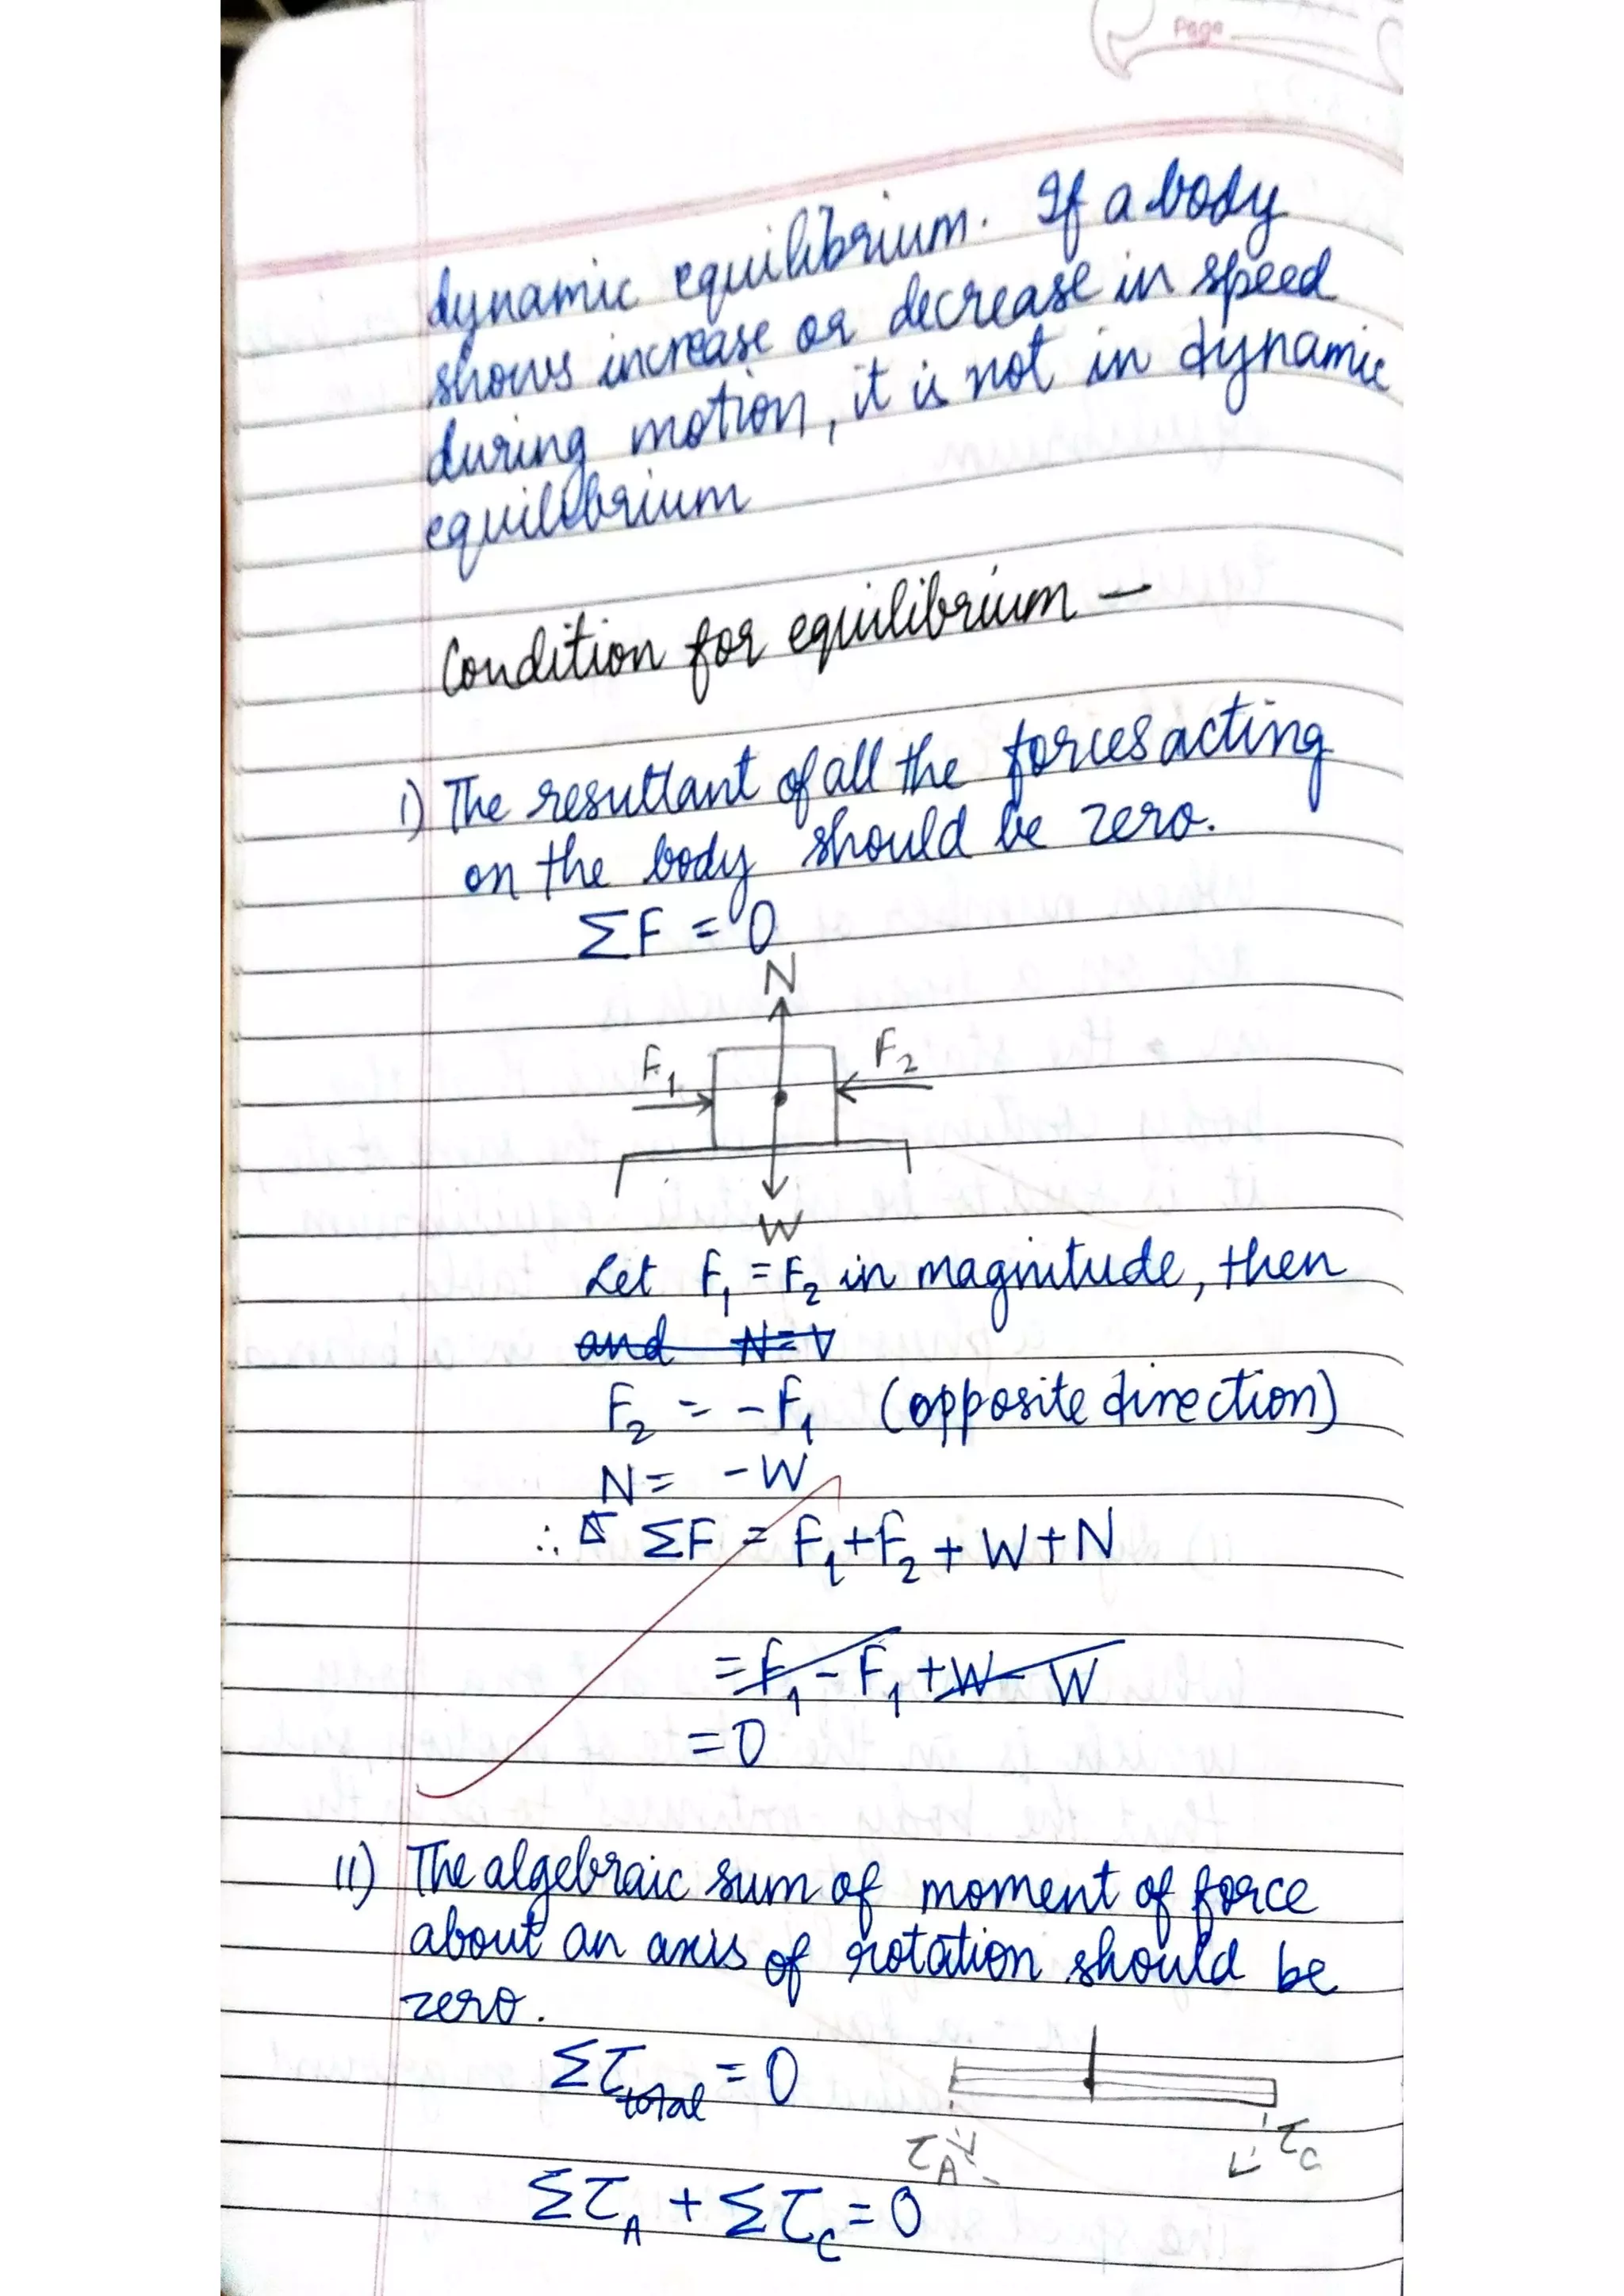 Page
dynamic equilibrium. If a body
shows increase or decrease in speed
during motion, it is not in dynamic
equilibrium
Condition for equilibrium –
i) The resultant of all the forces acting
on the body should be zero.
ΣF = 0
N
F₁ F₂
W
Let F₁ = F₂ in magnitude, then
and N=V
F₂ = -F₁ (opposite direction)
N = -W
∴ ΣF = F₁+F₂ + W+N
= F₁ - F₁ + W - W
= 0
ii) The algebraic sum of moment of force
about an axis of rotation should be
zero.
Στtotal = 0
τA τC
ΣτA + ΣτC = 0